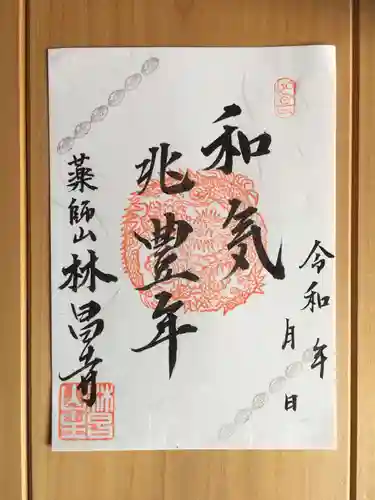 和気
兆豊年
令和 年
月 日
薬師山 林昌寺